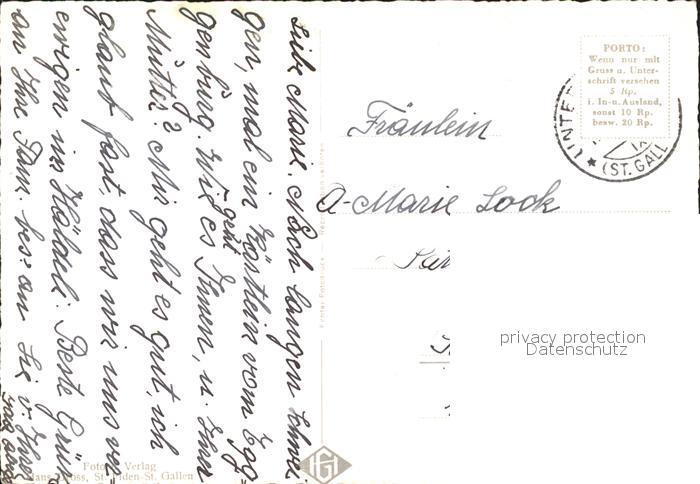 Liebe Marie. Nach langem
gen, mal ein Kärtlein vom Egg-
genbürg. Wie geht es Ihnen, u. Ihrer
Mutter? Mir geht es gut, ich
glaub fast, dass wir uns ve
ewigen im Häldeli. Beste Grüs
an Ihr Fam. bes: an Sie v. Ihre
Fräulein
A-Marie Lock
PORTO:
Wenn nur mit
Gruss u. Unter-
schrift versehen
5 Rp.
i. In- u. Ausland,
sonst 10 Rp.
bezw. 20 Rp.
UNTERE
(ST. GALL
privacy protection
Datenschutz
Foto Verlag
Hans Gross, St. Fiden-St. Gallen